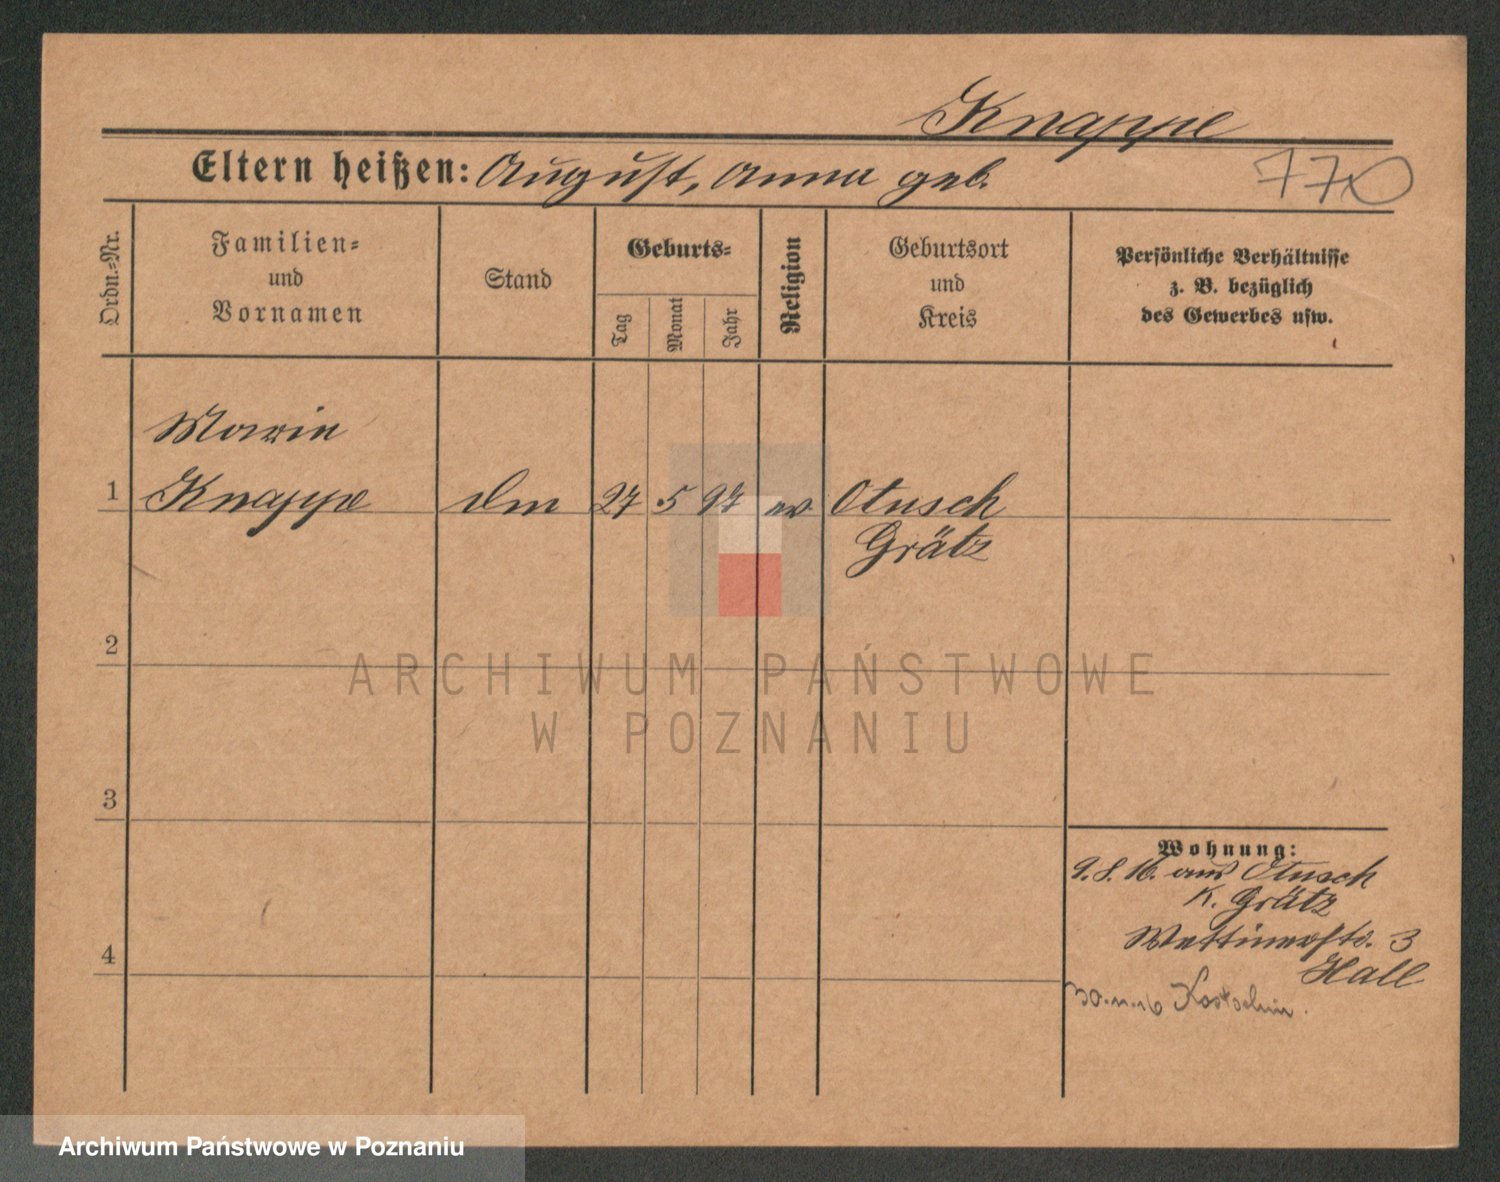 Knappe
Eltern heißen: August, Anna geb.
770
Ordn.=Nr.
Familien=
und
Vornamen
Stand
Geburts=
Tag
Monat
Jahr
Religion
Geburtsort
und
Kreis
Persönliche Verhältnisse
z. B. bezüglich
des Gewerbes usw.
Marie
1 Knappe 27 5 97 ev Otusch
Grätz
2
ARCHIWUM PAŃSTWOWE
W POZNANIU
3
Wohnung:
9.8.16. aus Otusch
K. Grätz
Wettinerstr. 3
Hall
4
30.11.16 Kostschin.
Archiwum Państwowe w Poznaniu